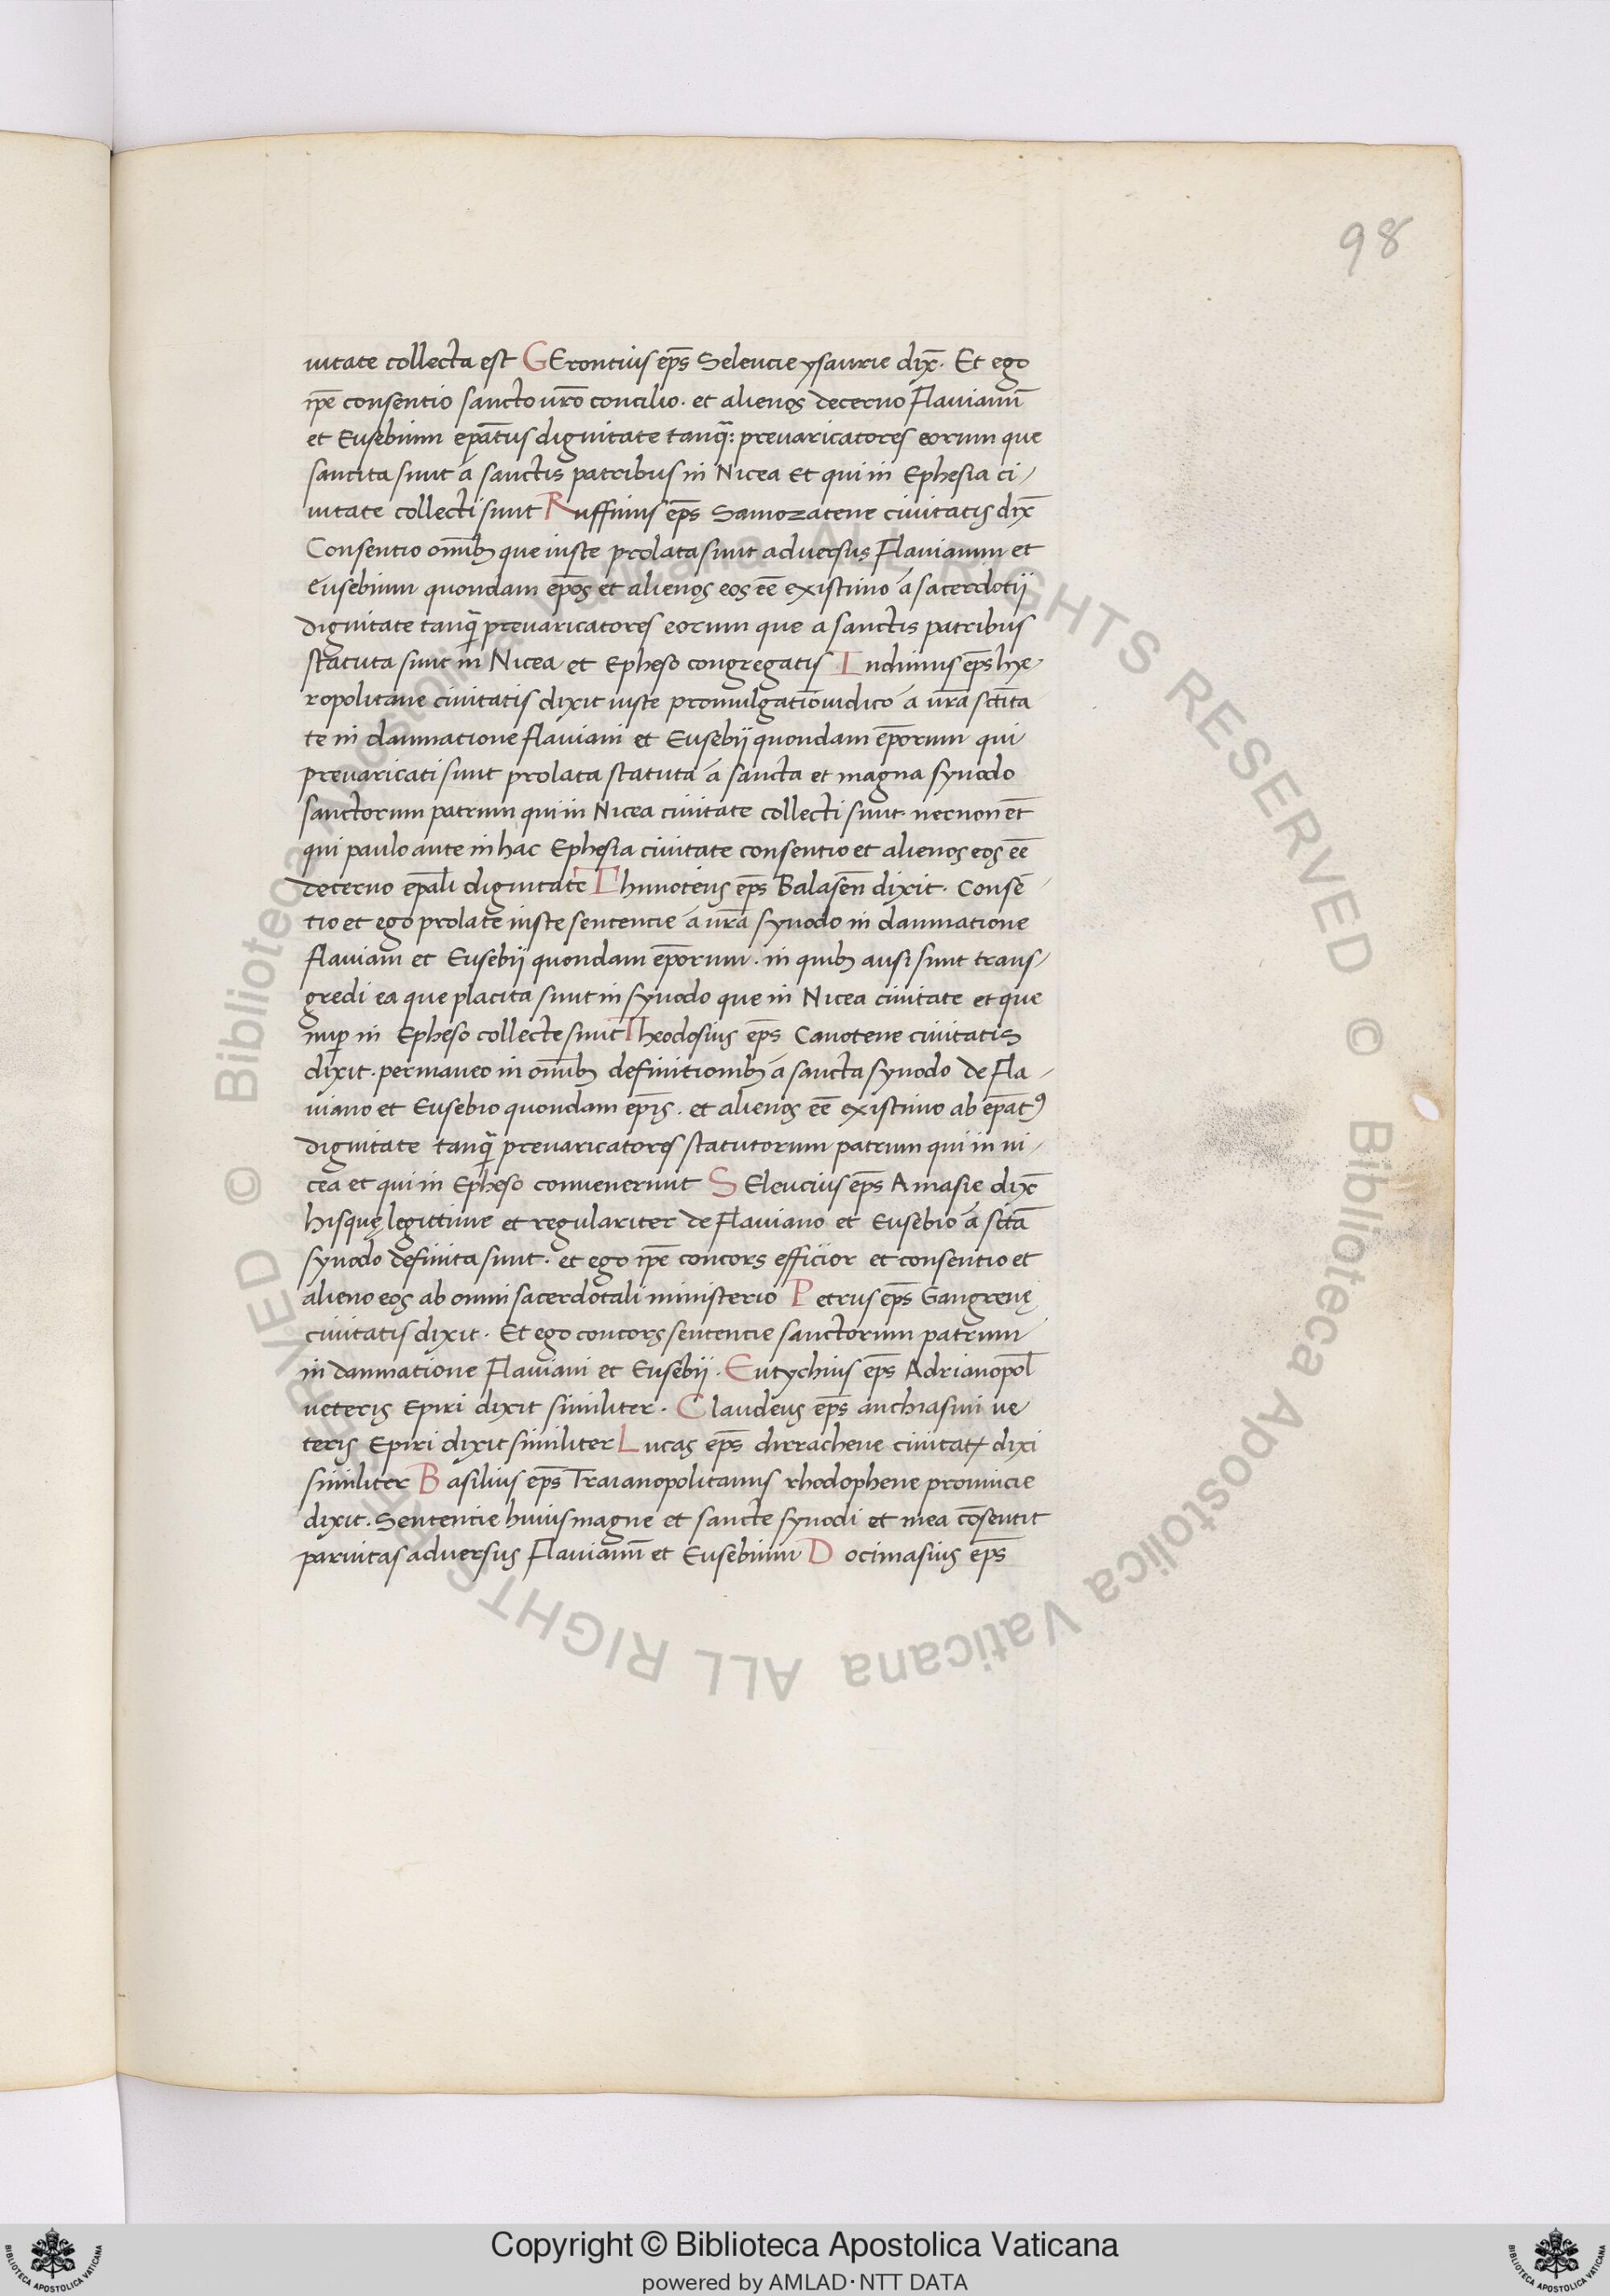 98
uitate collecta est GErontius ep̄s Seleucie ysaurie dix̄. Et ego
ip̄e consentio sancto ur̄o concilio. et alienos decerno Flavianū
et Eusebium ep̄atus dignitate tanq̄: prevaricatores eorum que
sancita sunt á sanctis patribus in Nicea Et qui in Ephesia ci-
uitate collecti sunt Ruffinus ep̄s Samozatene civitatis dix̄
Consentio om̄ib; que iuste prolata sunt adversus Flavianum et
eusebium quondam ep̄os et alienos eos ee̅ existimo á sacerdotij
dignitate tanq̄ prevaricatores eorum que a sanctis patribus
statuta sunt in Nicea et Epheso congregatis Iudimus ep̄s hye-
ropolitane civitatis dixit iuste promulgatiōi iudico á ur̄a sct̄ita
te in damnatione flaviani et Eusebij quondam ep̄orum qui
prevaricati sunt prolata statuta á sancta et magna synodo
sanctorum patrum qui in Nicea civitate collecti sunt. necnon et̄
qui paulo ante in hac Ephesia civitate consentio et alienos eos ee̅
decerno ep̄ali dignitate Thimoteus ep̄s Balasen̄ dixit. Consē-
tio et ego prolate iuste sentencie á ur̄a synodo in damnatione
flaviani et Eusebij quondam ep̄orum. in quib; ausi sunt trans-
gredi ea que placita sunt in synodo que in Nicea civitate et que
nup̄ in Epheso collecte sunt Theodosius ep̄s Canotene civitatis
dixit. permaneo in om̄ib; definitionib; á sancta synodo de Fla-
viano et Eusebio quondam ep̄is. et alienos ee̅ existimo ab ep̄atꝰ
dignitate tanq̄ prevaricatores statutorum patrum qui in ni-
cea et qui in Epheso convenerunt SEleucius ep̄s Amasie dix̄
hisquę legittime et regulariter de Flaviano et Eusebio á sct̄a
synodo definita sunt. et ego ip̄e concors efficior et consentio et
alieno eos ab omni sacerdotali ministerio Petrus ep̄s Gangrenę
civitatis dixit. Et ego concors sentencie sanctorum patrum
in damnatione Flaviani et Eusebij. Eutychius ep̄s Adrianopol̄
ueteris Epiri dixit similiter. Claudeus ep̄s anchiasmi ve
teris Epiri dixit similiter Lucas ep̄s dirrachene civitatꝭ dixi
similiter Basilius ep̄s Traianopolitanus rhodophene provincie
dixit. Sentencie huius magne et sancte synodi et mea cōsentit
parvitas adversus Flavianū et Eusebium Docimasius ep̄s
© Biblioteca Apostolica Vaticana ALL RIGHTS RESERVED
© Biblioteca Apostolica Vaticana ALL RIGHTS RESERVED
Copyright © Biblioteca Apostolica Vaticana
powered by AMLAD·NTT DATA
BIBLIOTECA APOSTOLICA VATICANA
BIBLIOTECA APOSTOLICA VATICANA